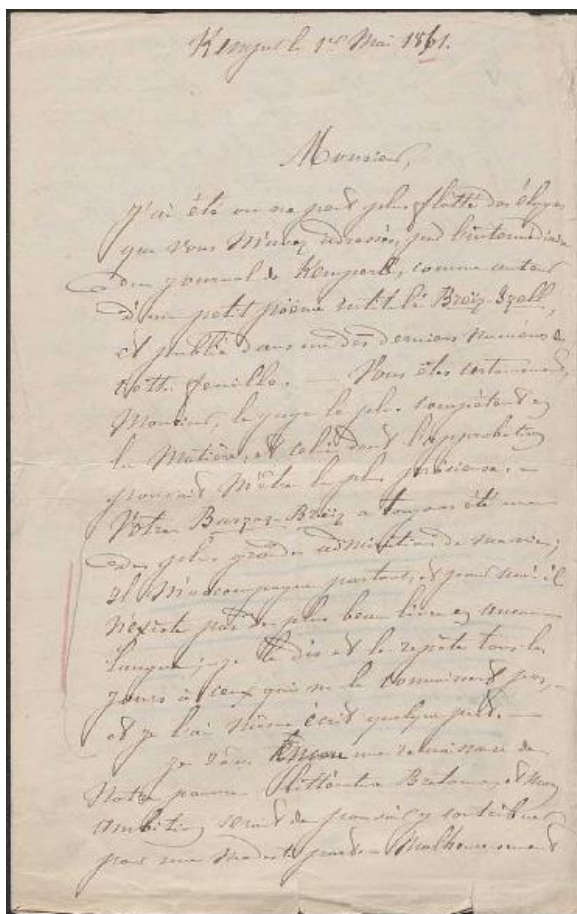 Kemper le 1er Mai 1861.
Monsieur,
J'ai été on ne peut plus flatté des éloges
que vous m'avez adressés, par l'intermédiaire
du journal de Kemperlé, comme auteur
d'un petit poème intitulé Breiz-Izell,
et publié dans un des derniers numéros de
cette feuille. — Vous êtes certainement,
Monsieur, le juge le plus compétent en
la matière, et celui dont l'approbation
pouvait m'être la plus précieuse. —
Votre Barzaz-Breiz a toujours été une
des plus grandes admirations de ma vie;
il m'accompagne partout, et pour moi il
n'existe pas de plus beau livre en aucune
langue; je le dis et le répète tous les
jours à ceux qui ne le connaissent pas, —
et je l'ai même écrit quelque part. —
Je rêve une renaissance de
notre pauvre littérature Bretonne, et mon
ambition serait de pouvoir y contribuer
pour une modeste part. Malheureusement